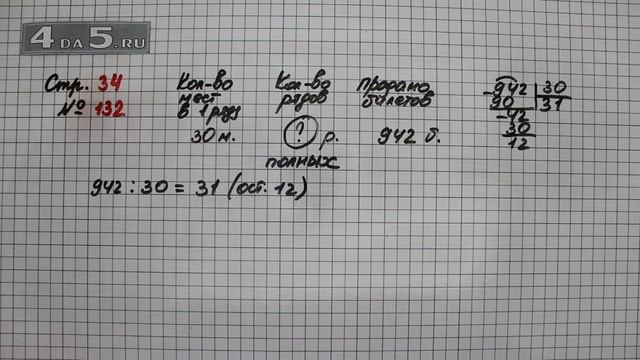 4 DA 5.RU
Стр. 34
№ 132
Кол-во
мест
в 1 ряду
30 м.
Кол-во
рядов
? р.
полных
Продано
билетов
942 б.
-942 | 30
90 | 31
-42
30
12
942 : 30 = 31 (ост. 12)